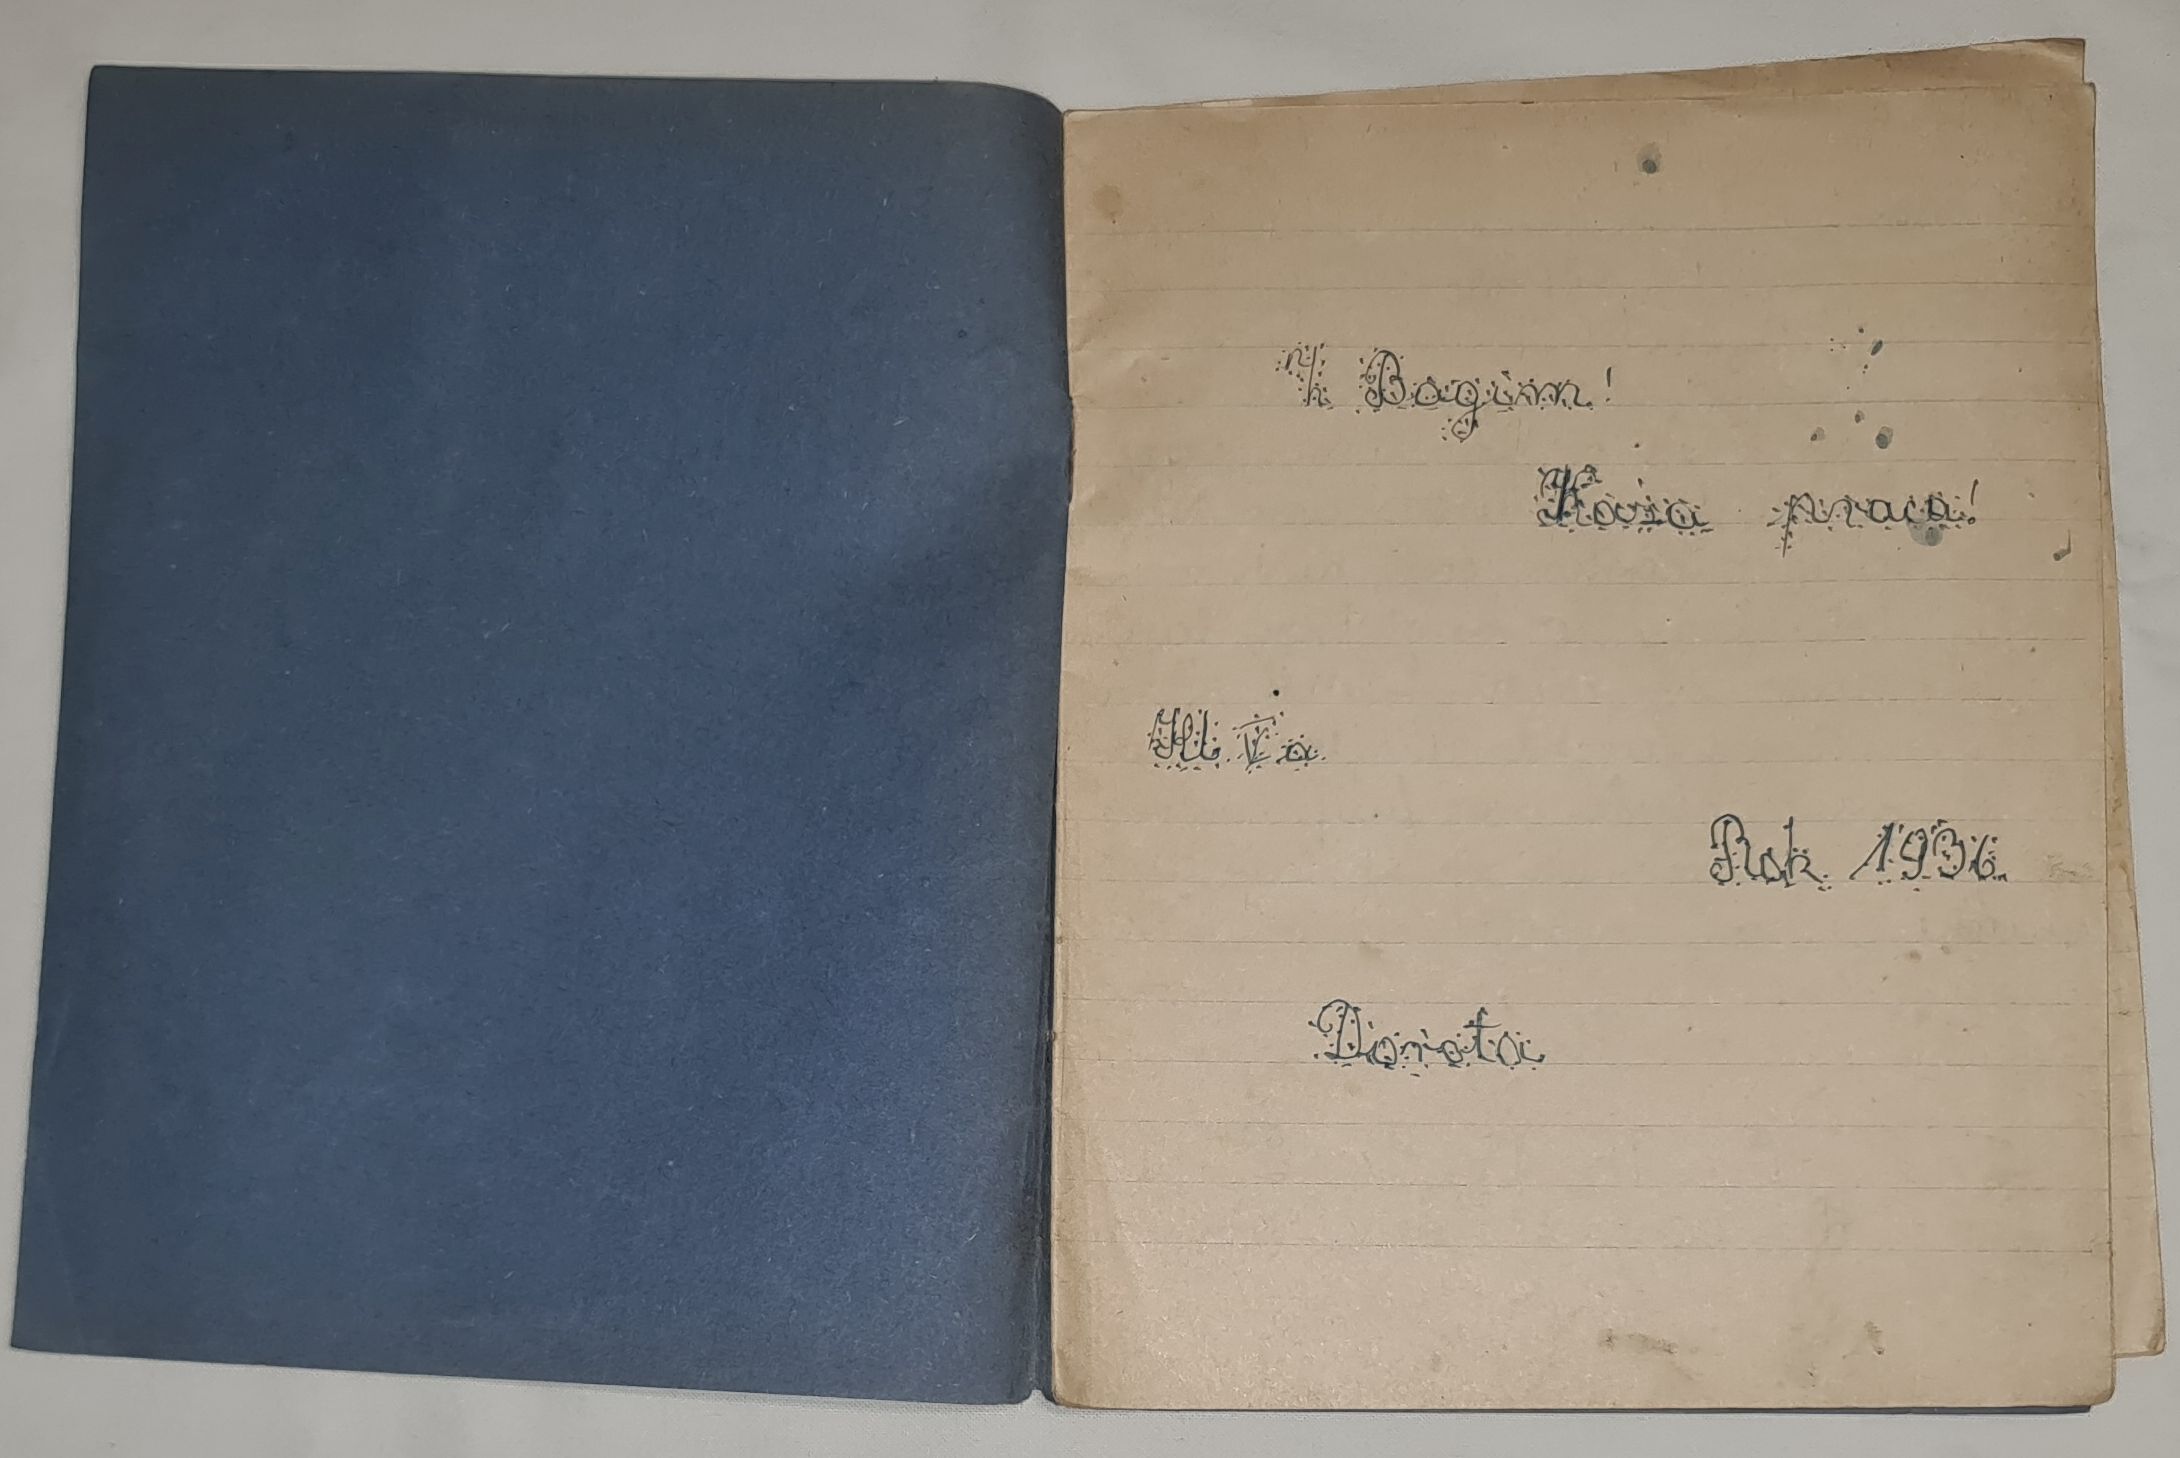 Z Bogiem!
Każda praca!
Kl. V a.
Rok 1936.
Dorota